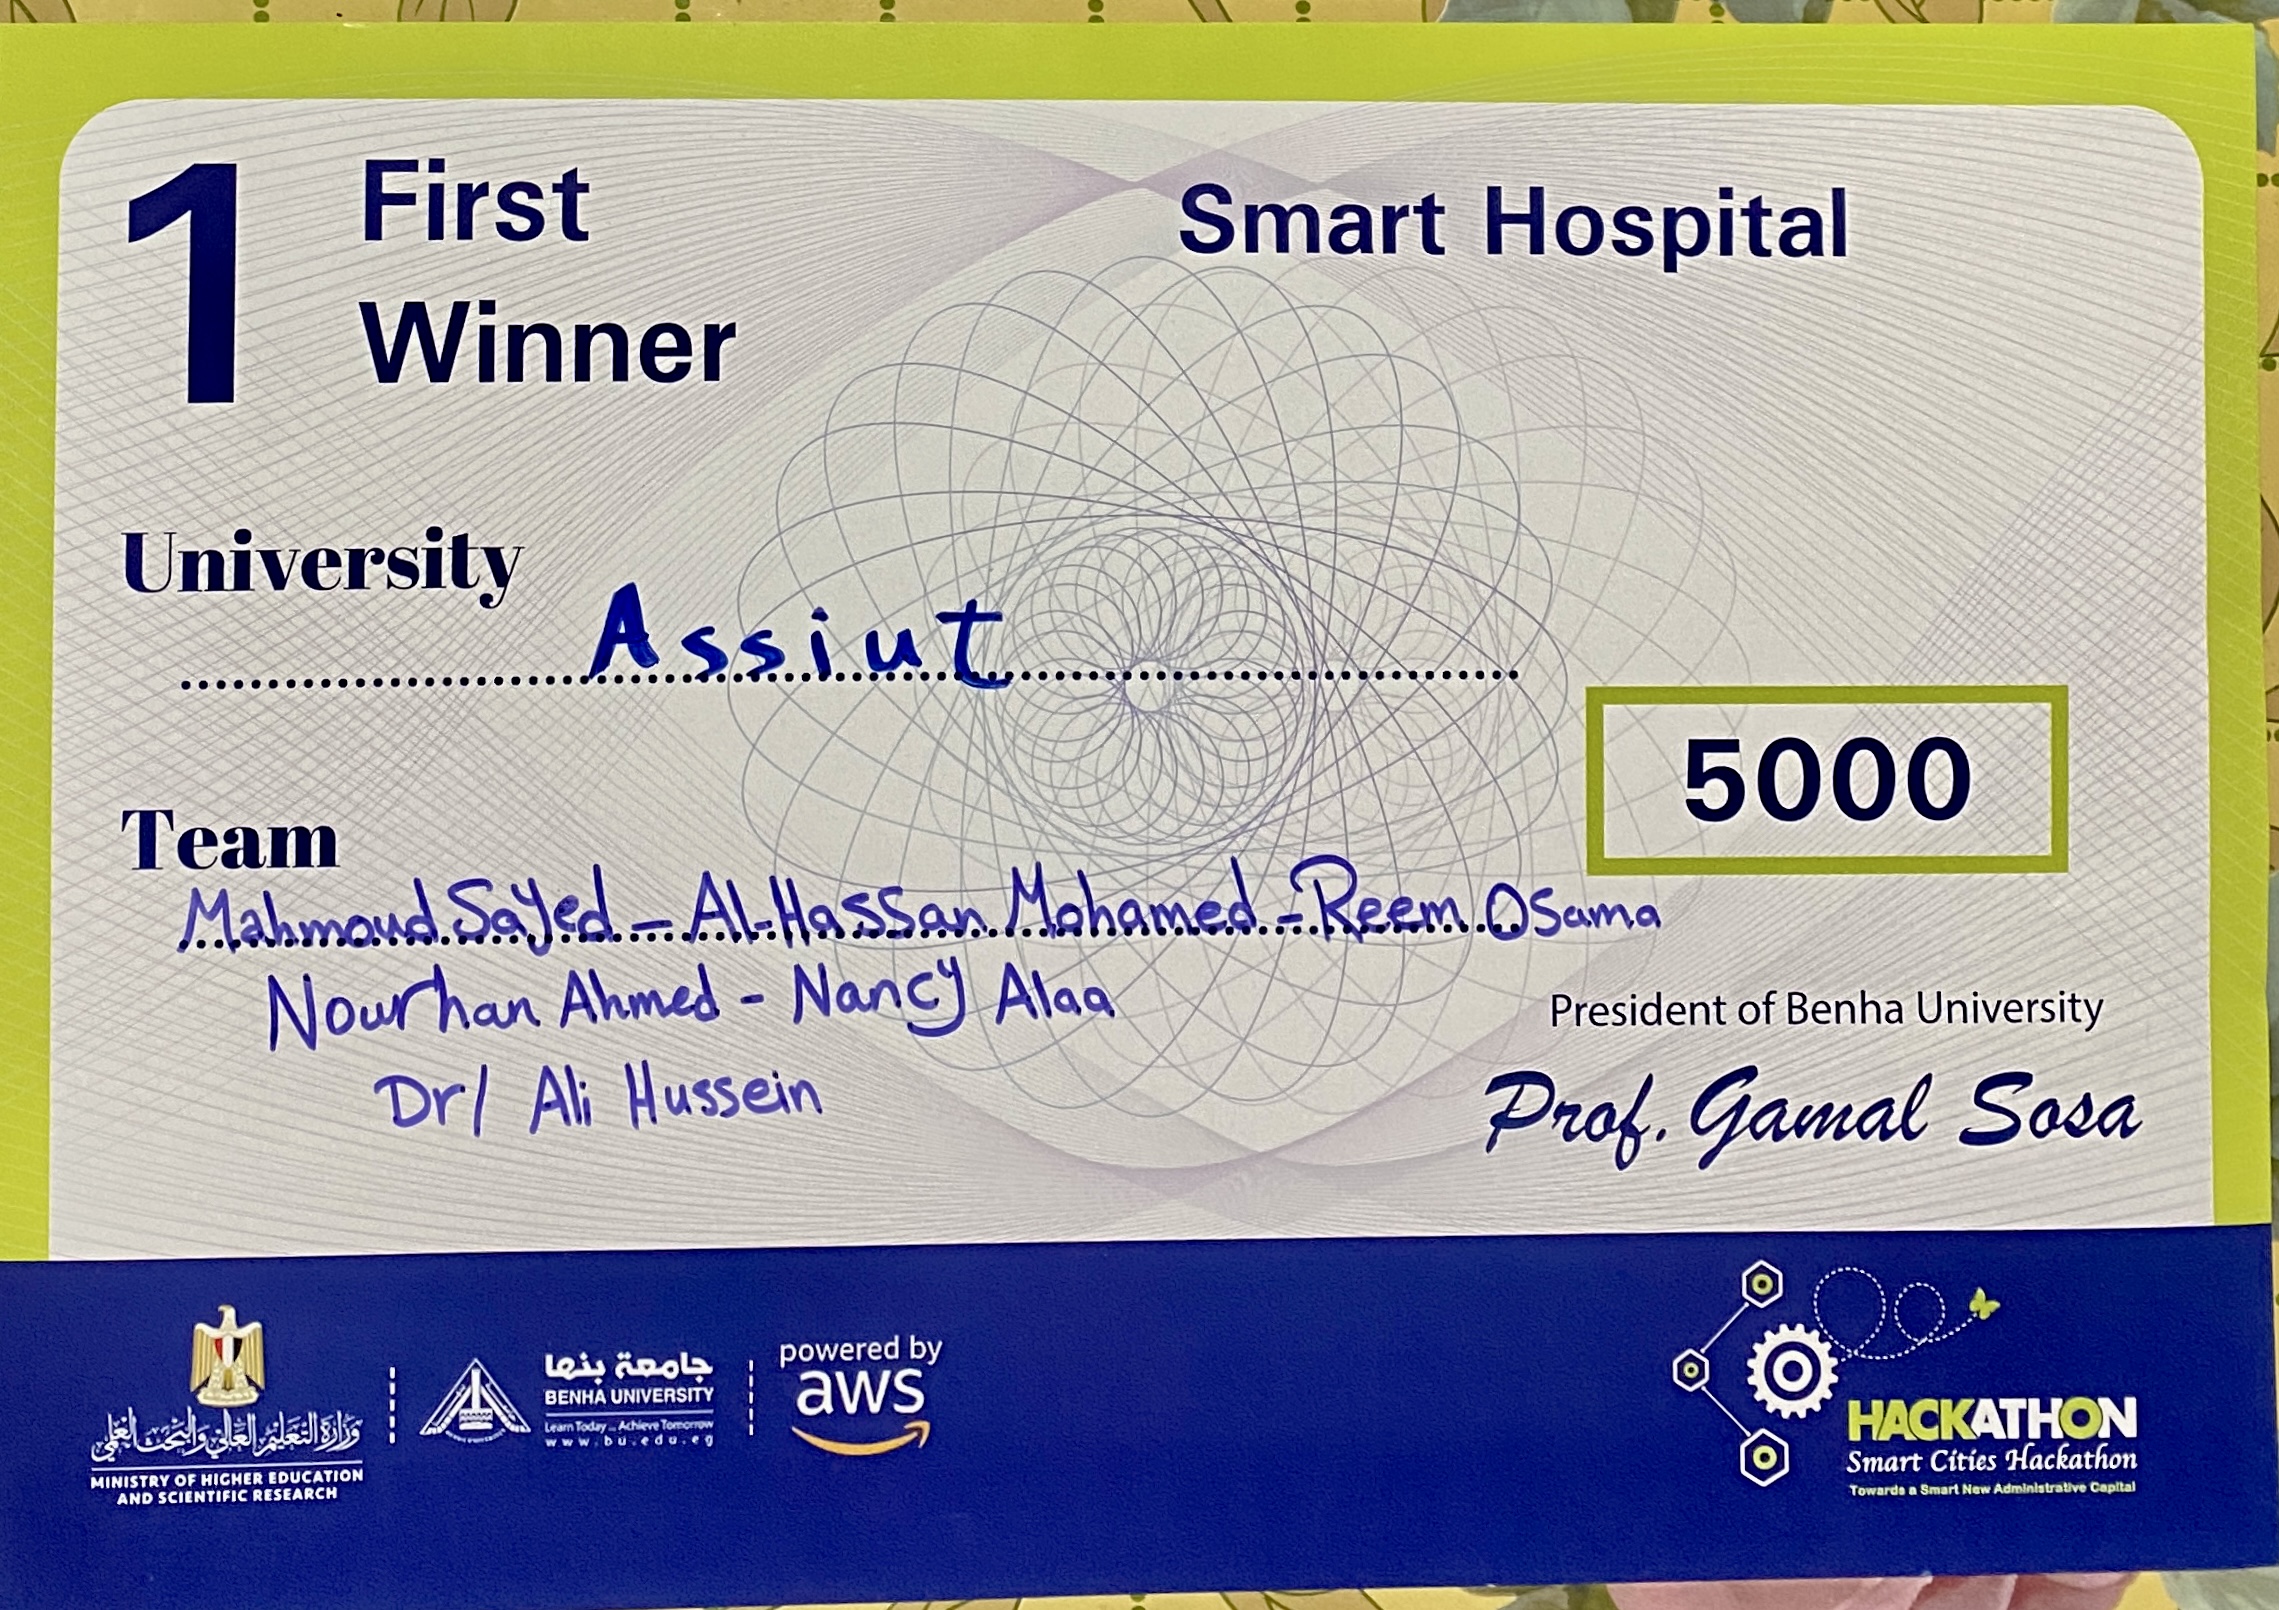 1
First
Winner
Smart Hospital
University
Assiut
5000
Team
Mahmoud Sayed - Al-Hassan Mohamed - Reem Osama
Nourhan Ahmed - Nancy Alaa
Dr/ Ali Hussein
President of Benha University
Prof. Gamal Sosa
وزارة التعليم العالي والبحث العلمي
MINISTRY OF HIGHER EDUCATION
AND SCIENTIFIC RESEARCH
جامعة بنها
BENHA UNIVERSITY
Learn Today ... Achieve Tomorrow
www.bu.edu.eg
powered by
aws
HACKATHON
Smart Cities Hackathon
Towards a Smart New Administrative Capital